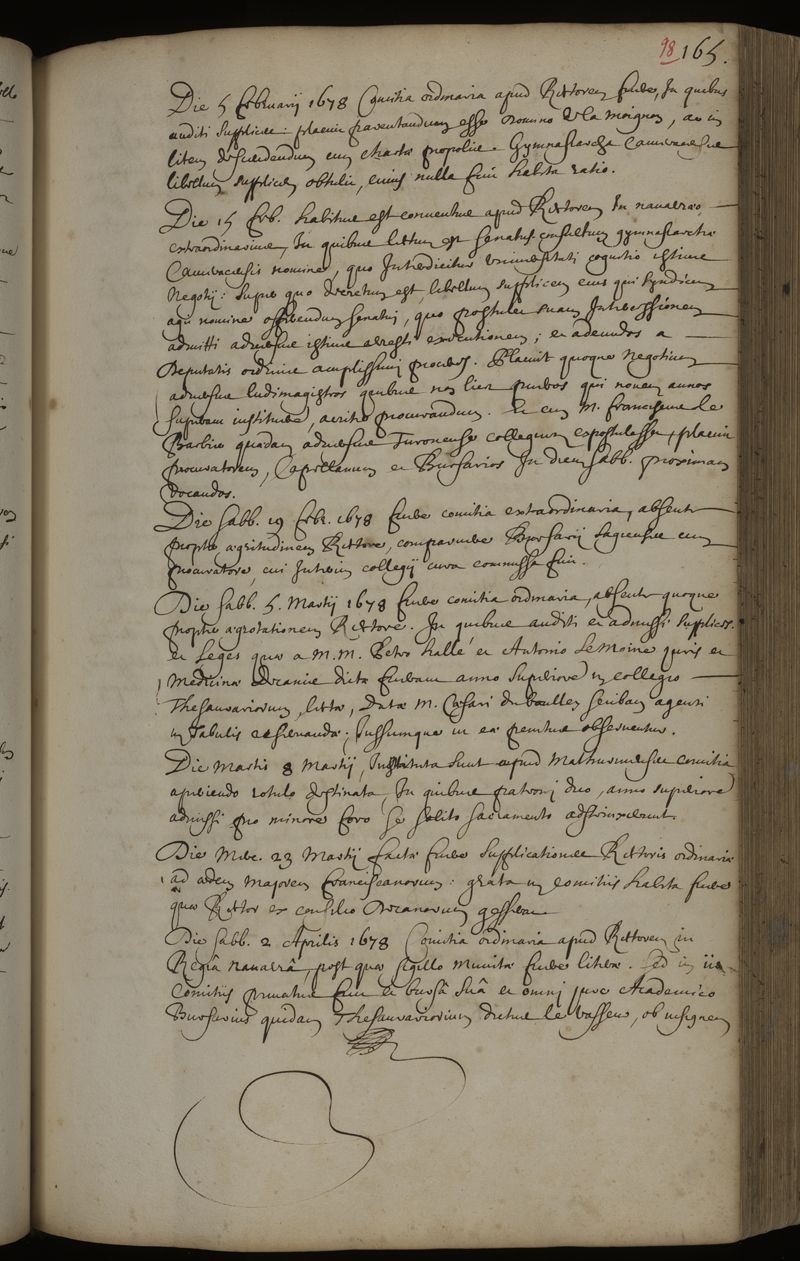 98 165.
Die 5 februarij 1678 Comitia ordinaria apud Rectorem fuere, In quibus
auditi supplices: placuit praesentandum esse nomine de la moignon, ac in
litem descendendum cum charta propolis. Gymnasiarcha Camaracensis
libellum supplicem obtulit, cuius nulla fuit habita ratio.
Die 15 feb. habitus est conventus apud Rectorem In navarra
extraordinarius, In quibus lectum est senatus consultum gymnasiarchae
Camaracensis nomine, quo Interdicitur universitati cognitio istius
Negotij: super quo decretum est, libellum supplicem eius qui syndicum
agit nomine offerendum senatui, quo postulet suam Intercessionem
admitti adversus istius aresti executionem; et adeundos a
Deputatis ordinis amplissimi proceres. Placuit quoque Negotium
adversus ludimagistros quibus non licet pueros qui novem annos
superant instituere, acrius procurandum. Et cum M. franciscus le
Barbier quaedam adversus Turonense collegium expostulasset, placuit
procuratorem, Capellanum et Bursarios In diem sabb. proximam
vocandos.
Die sabb. 19 febr. 1678 fuere comitia extraordinaria, absente
propter aegritudinem Rectore, comparuere Bursarij sagienses cum
procuratore, cui Interim collegij cura commissa fuit.
Die sabb. 5. Martij 1678 fuere comitia ordinaria, absente quoque
propter aegrotationem Rectore. In quibus auditi et admissi supplices.
et Leges quae a M.M. Petro hallé et Antonio Le Moine juris et
Medicinae decanis dictae fuerant anno superiore in collegio
Thesaurariorum, lectae, datae M. Caesari du boullay scribam agenti
in tabulis reserandae; Jussumque ut ea penitus observentur.
Die Martis 8 Martij, Instituta sunt apud Mathurinenses comitia
aperiendo rotulo destinata, In quibus patroni duo, anno superiore
admissi pro minore foro se solito sacramento adstrinxerunt.
Die Merc. 23 Martij facta fuere supplicationes Rectoris ordinaria
ad aedem Majorem franciscanorum: grata in comitiis habita fuere
quae Rector ex consilio Decanorum gesserat
Die sabb. 2 Aprilis 1678 Comitia ordinaria apud Rectorem in
Regia navarrâ, post quae sigillo munitae fuere literae. Sed in iis
Comitiis privatus fuit et bursâ suâ et omni jure Academico
Bursarius quidam Thesaurariorum dictus le vasseur, ob insignem